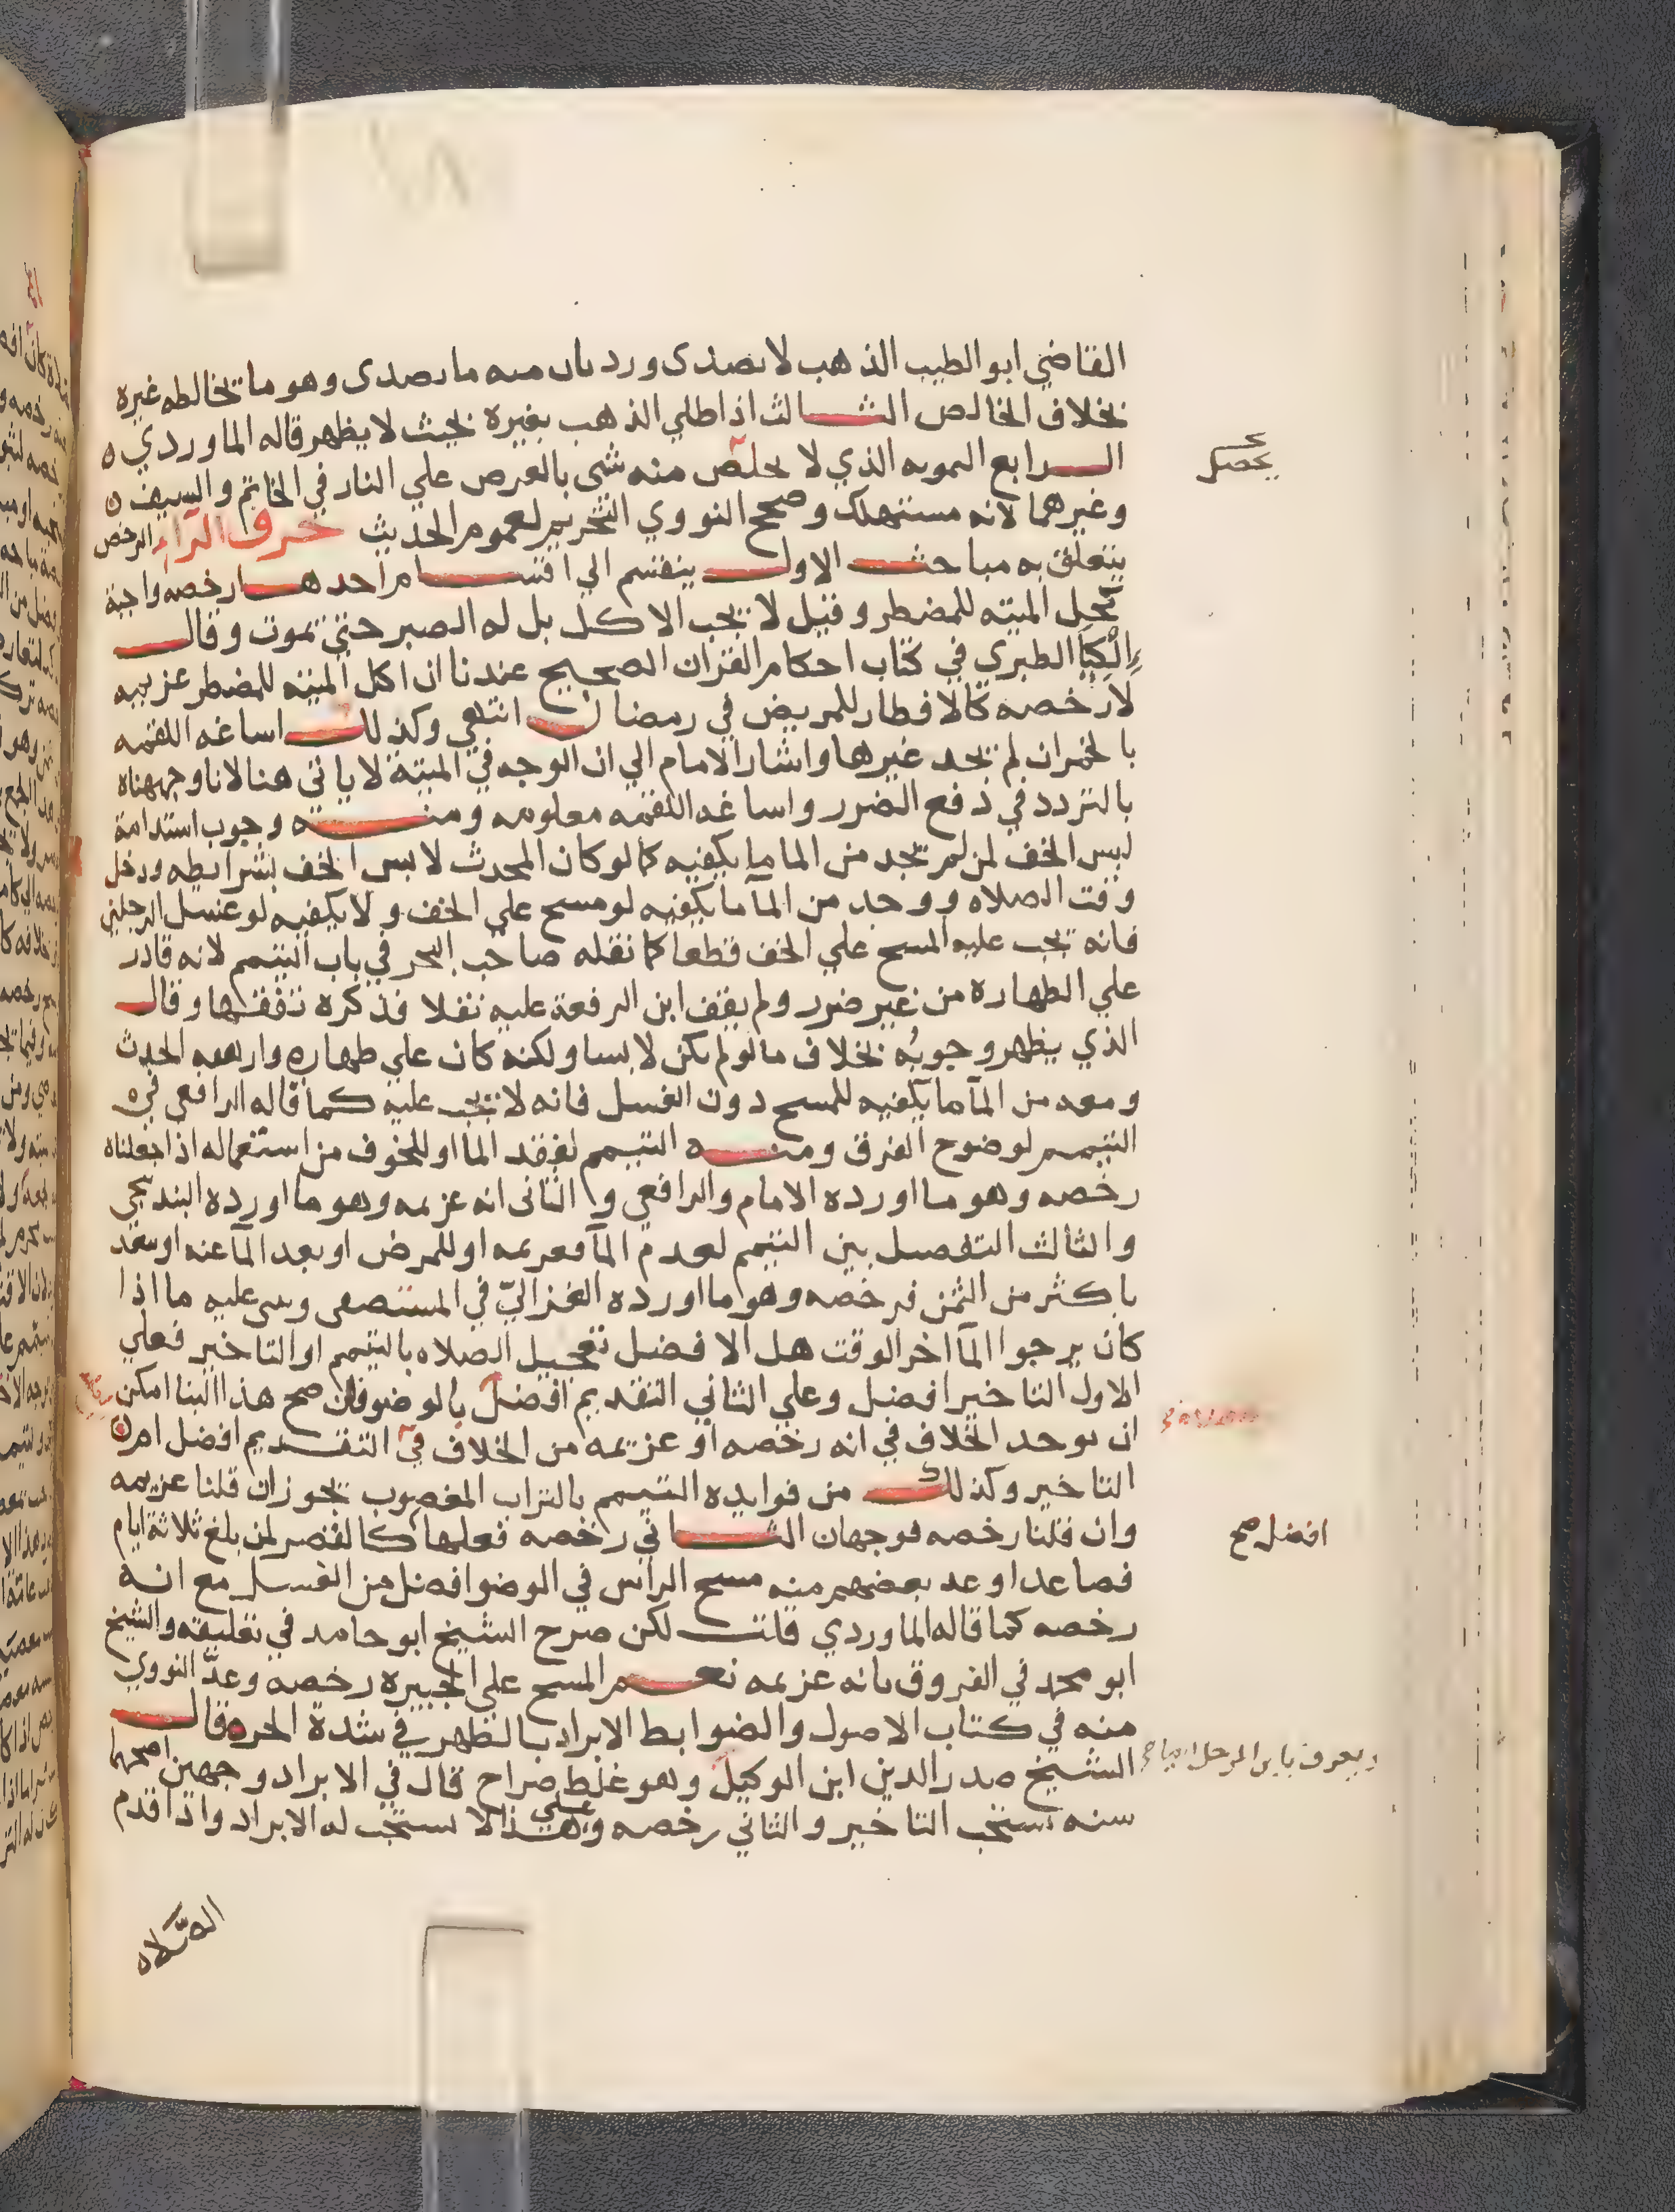 القاضي ابو الطيب الذهب لا يصدى ورد بان منه ما يصدى وهو ما تخالطه غيره
بخلاف الخالص الثالث اذا طلي الذهب بغيره بحيث لا يظهر قاله الماوردي ه
الرابع المموه الذي لا يخلص منه شى بالعرض علي النار في الخاتم والسيف ه
يحصل
وغيرهما لانه مستهلك وصحح النووي التحريم لعموم الحديث حرف الراء الرخص
يتعلق به مباحث الاول ينقسم الي اقسام احدها رخصه واجبة
كحل الميته للمضطر وقيل لا يجب الاكل بل له الصبر حتى يموت وقال
اِلْكِيَا الطبري في كتاب احكام القران الصحيح عندنا ان اكل الميته للمضطر عزيمه
لا رخصه كالافطار للمريض في رمضان انتهي وكذلك اساغه اللقمه
بالخمر ان لم يجد غيرها واشار الامام الي ان الوجه في الميتة لا ياتي هنا لانا وجهناه
بالتردد في دفع الضرر واساغه اللقمه معلومه ومنه وجوب استدامة
لبس الخف لمن لم يجد من الما ما يكفيه كما لو كان المحدث لابس الخف بشرايطه ودخل
وقت الصلاه ووجد من المآ ما يكفيه لو مسح علي الخف ولا يكفيه لو غسل الرجلين
فانه يجب عليه المسح علي الخف قطعا كما نقله صاحب البحر في باب التيمم لانه قادر
علي الطهاره من غير ضرر ولم يقف ابن الرفعة عليه نقلا فذكره تفقها وقال
الذي يظهر وجوبُه بخلاف ما لو لم يكن لابسا ولكنه كان علي طهاره وارهقه الحدث
ومعه من المآ ما يكفيه للمسح دون الغسل فانه لا يجب عليه كما قاله الرافعى في ه
التيمم لوضوح الفرق ومنه التيمم لفقد الما او للخوف من استعماله اذا جعلناه
رخصه وهو ما اورده الامام والرافعي والثانى انه عزيمه وهو ما اورده البندنيجي
والثالث التفصيل بين التيمم لعدم المآ فعزيمه او للمرض او بعد المآ عنه او بيعه
باكثر من الثمن فرخصه وهو ما اورده الغزاليّ في المستصفى وبنى عليه ما اذا
كان يرجوا المآ اخر الوقت هل الافضل تعجيل الصلاه بالتيمم او التاخير فعلي
الاول التاخير افضل وعلي الثاني التقديم افضل بالوضو فان صح هذا البنا امكن
ان يوخذ الخلاف في انه رخصه او عزيمه من الخلاف في التقديم افضل ام ه
التاخير وكذلك من فوايده التيمم بالتراب المغصوب يجوز ان قلنا عزيمه
وان قلنا رخصه فوجهان الثاني رخصه فعلها كالقصر لمن بلغ ثلاثة ايام
افضل صح
فصاعدا وعد بعضهم منه مسح الراس في الوضو افضل من الغسل مع انه
رخصه كما قاله الماوردي قلت لكن صرح الشيخ ابو حامد في تعليقه والشيخ
ابو محمد في الفروق بانه عزيمه نعم المسح علي الجبيره رخصه وعدّ النووي
منه في كتاب الاصول والضوابط الابراد بالظهر في شدة الحر ه قال
الشيخ صدر الدين ابن الوكيل وهو غلط صراح قال في الابراد وجهين اصحهما
ويعرف بابن المرحل
سنه يستحب التاخير والثاني رخصه وعلي هذا لا يستحب له الابراد واذا قدم
الصّلاه